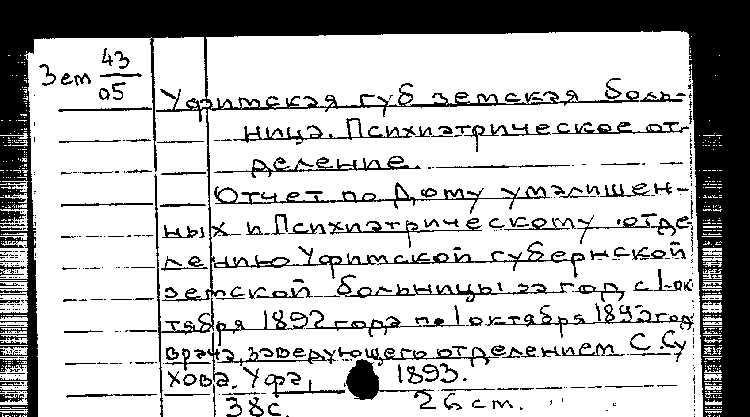 Зем 43/05
Уфимская губ земская боль-
ница. Психиатрическое от-
деление.
Отчет по Дому умалишен-
ных и Психиатрическому отде
лению Уфимской губернской
земской больницы за год с 1-ок
тября 1892 года по 1 октября 1893 год
врача, заведующего отделением С. Су
хова. Уфа, 1893.
38с. 26 см.